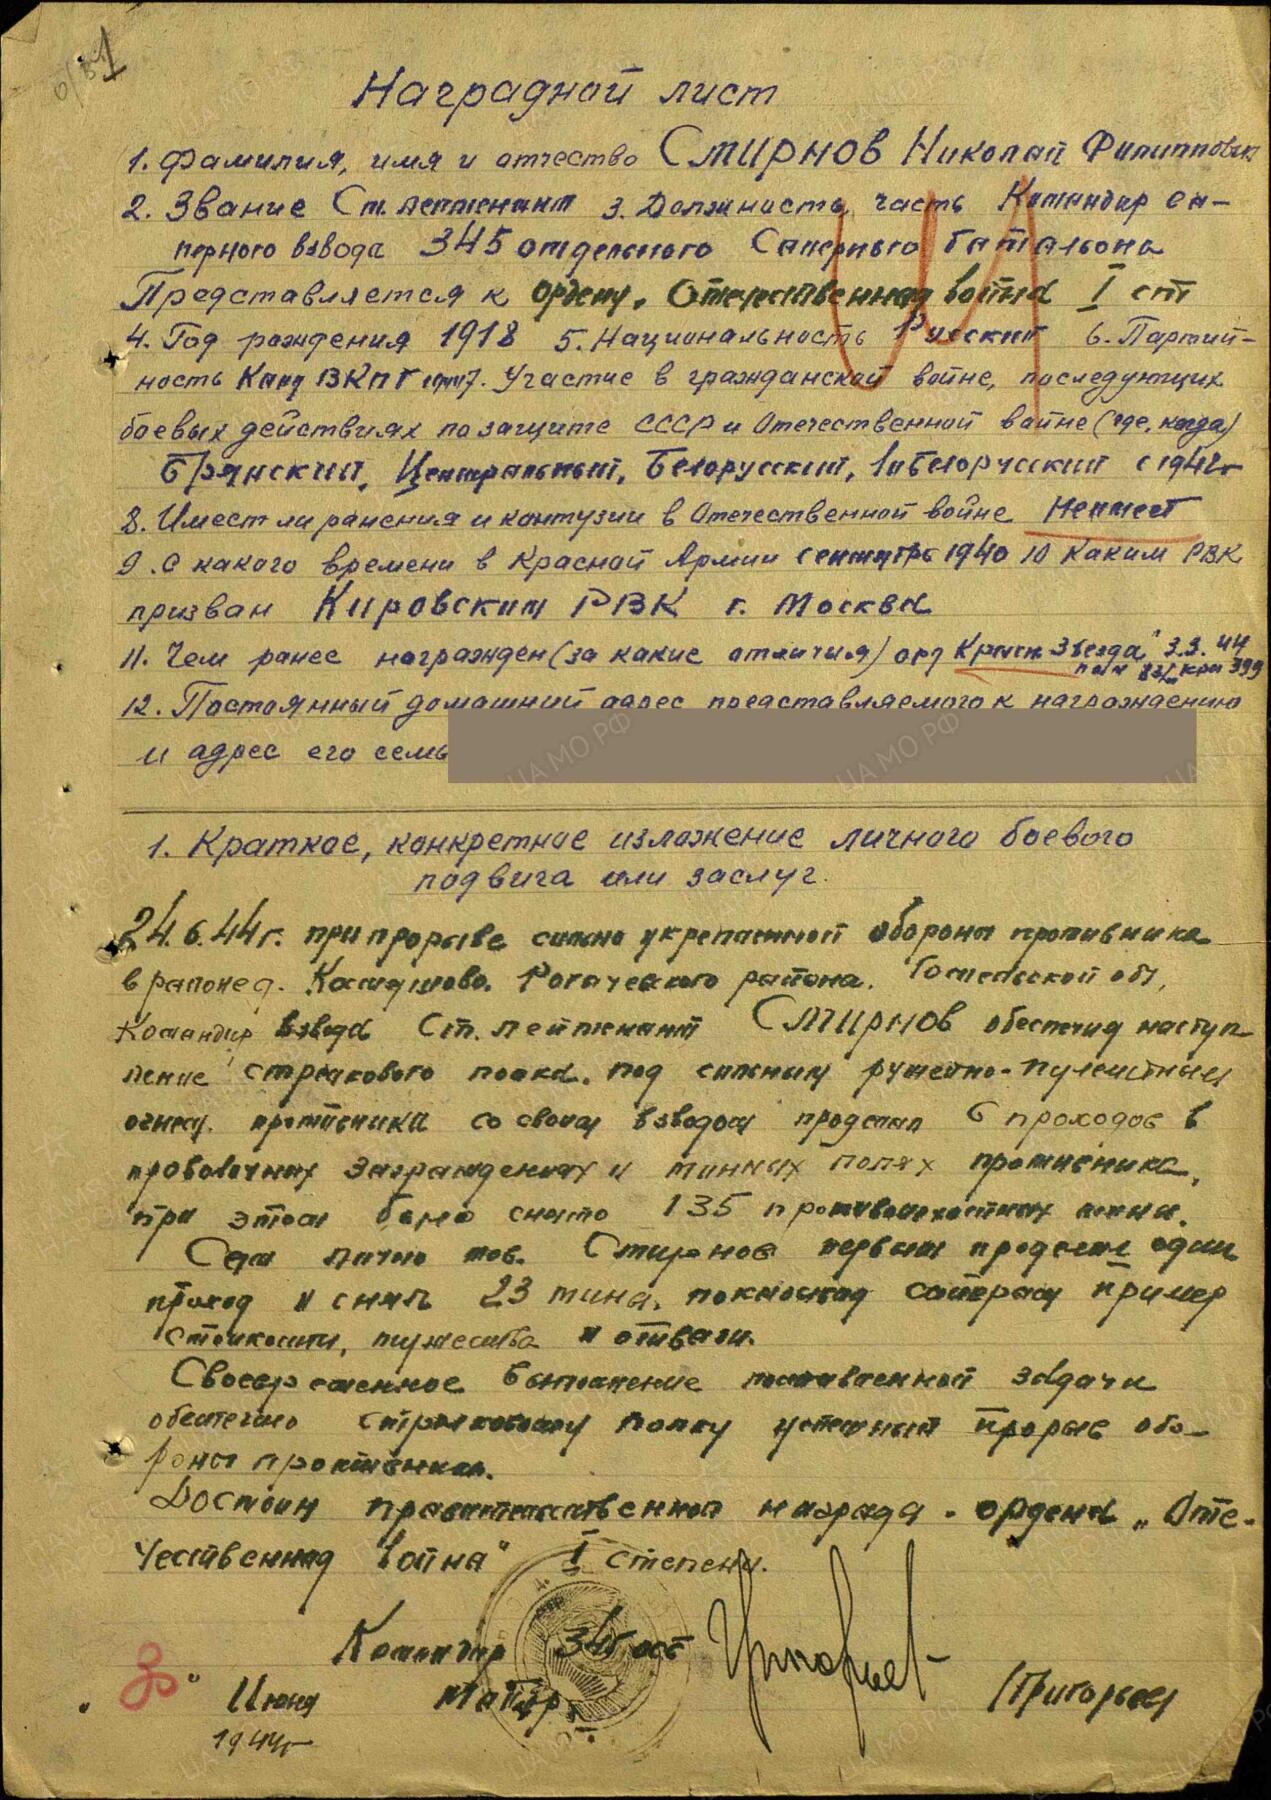 1
Наградной лист
1. Фамилия, имя и отчество Смирнов Николай Филиппович
2. Звание Ст. лейтенант 3. Должность, часть Командир са-
перного взвода 345 отдельного Саперного батальона
Представляется к Ордену, Отечественная война I ст
4. Год рождения 1918 5. Национальность Русский 6. Партий-
ность Канд ВКПб 7. Участие в гражданской войне, последующих
боевых действиях по защите СССР и Отечественной войне (где, когда)
Брянский, Центральный, Белорусский, 1й Белорусский с 1942г
8. Имест ли ранения и контузии в Отечественной войне Не имеет
9. С какого времени в Красной Армии сентябрь 1940 10 Каким РВК
призван Кировским РВК г. Москва
11. Чем ранее награжден (за какие отличия) орд Красн. Звезда" 3.3.44
399
12. Постоянный домашний адрес представляемого к награждению
и адрес его семь
1. Краткое, конкретное изложение личного боевого
подвига или заслуг.
24.6.44г. при прорыве сильно укрепленной обороны противника
в районе д. Рогачевского района. Гомельской обл,
Командир взвода Ст. лейтенант Смирнов обеспечил наступ-
ление стрелкового полка. под сильным ружейно-пулеметным
огнем. противника со своим взводом проделал 6 проходов в
проволочных заграждениях и минных полях противника,
при этом было снято 135 противопехотных мины.
Сам лично тов. Смирнов первым проделал один
проход и снял 23 мины. показывая саперам пример
стойкости, мужества и отваги.
Своевременное выполнение поставленной задачи
обеспечило стрелковому полку успешный прорыв обо-
роны противника.
Достоин правительственной награды - ордена „Оте-
чественная война" I степени.
Командир 345 осб
Майор Григорьев /Григорьев/
" 30 " Июня
1944г